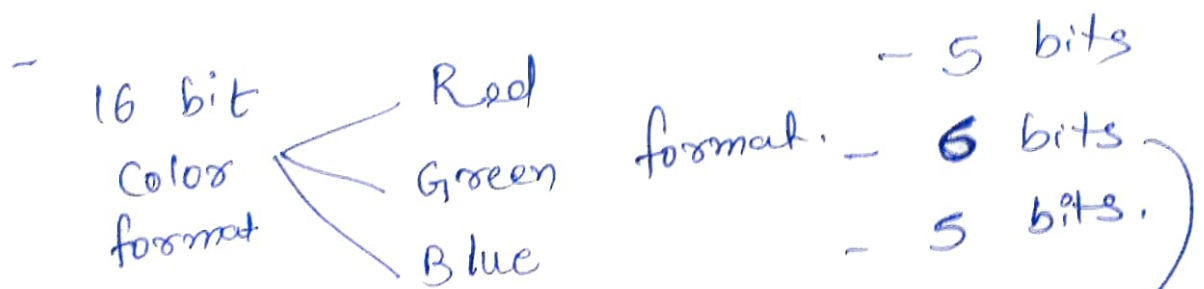 - 16 bit Color format
Red
Green
Blue
format.
- 5 bits
- 6 bits
- 5 bits.